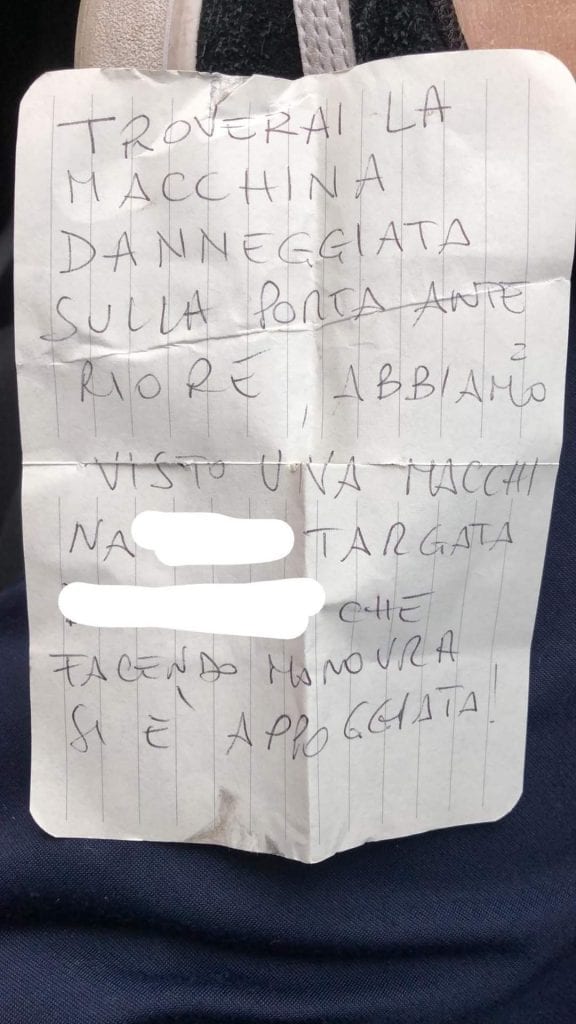 TROVERAI LA
MACCHINA
DANNEGGIATA
SULLA PORTA ANTE
RIORE, ABBIAMO
VISTO UNA MACCHI
NA TARGATA
CHE
FACENDO MANOVRA
SI È APPOGGIATA!